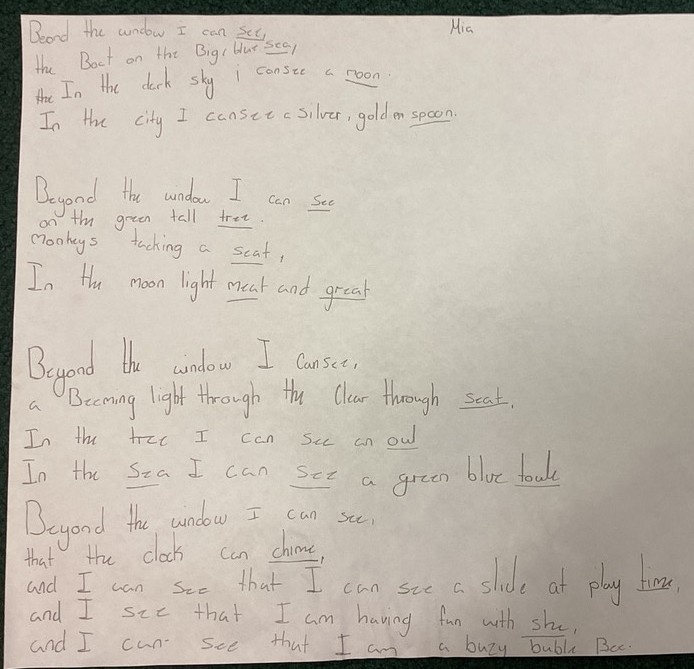 Mia
Beond the window I can see,
the Boat on the Big, blue sea,
the In the dark sky I cansee a moon.
In the city I cansee a silver, gold on spoon.
Beyond the window I can see
on the green tall tree.
Monkeys tacking a seat,
In the moon light meat and great
Beyond the window I cansee,
a Beeming light through the clear through seat.
In the tree I can see an owl
In the sea I can see a green blue towle
Beyond the window I can see,
that the clock can chime,
and I can see that I can see a slide at play time,
and I see that I am having fun with she,
and I can see that I am a buzy buble Bee.